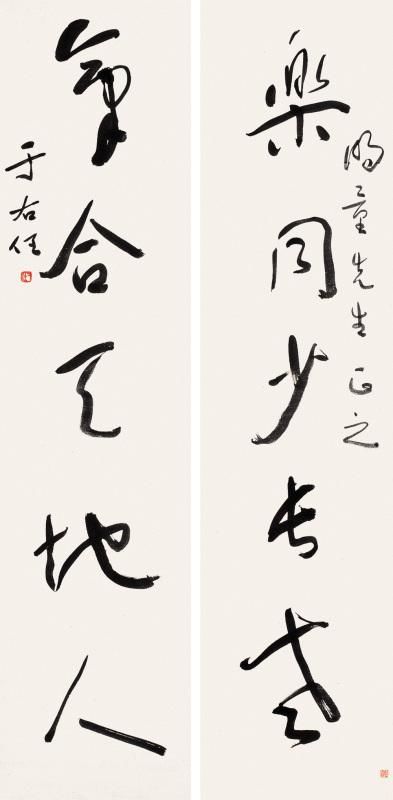 先生正之
樂同少長老
氣合天地人
于右任